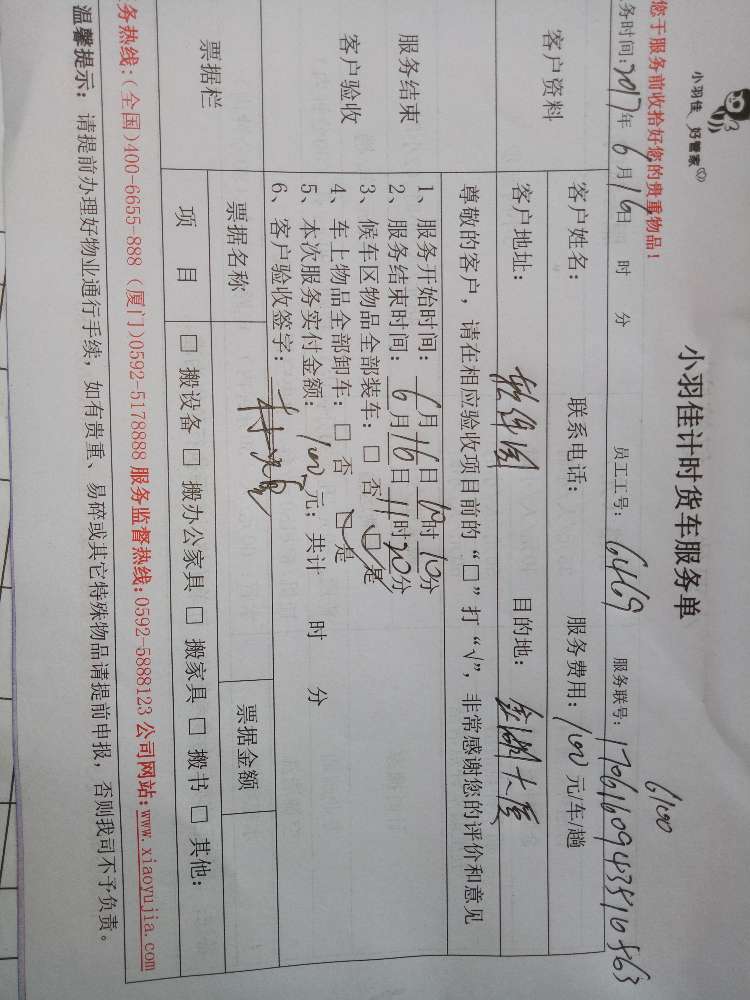 小羽佳 好管家
小羽佳计时货车服务单
6100
您于服务前收拾好您的贵重物品！
务时间：2017年 6月16日 时 分 员工工号：6469 服务联号：
客户资料
客户姓名： 联系电话： 服务费用：100元/车/趟
客户地址： 软件园 目的地： 金湖大厦
尊敬的客户，请在相应验收项目前的“□”打“√”，非常感谢您的评价和意见
服务结束
客户验收
1、服务开始时间：6月16日10时10分
2、服务结束时间：6月16日11时20分
3、候车区物品全部装车：□ 否 □ 是
4、车上物品全部卸车：□ 否 □ 是
5、本次服务实付金额：100元；共计 时 分
6、客户验收签字：
票据栏
票据名称 票据金额
项 目 □ 搬设备 □ 搬办公家具 □ 搬家具 □ 搬书 □ 其他：
务热线：(全国)400-6655-888 (厦门)0592-5178888 服务监督热线：0592-5888123 公司网站：www.xiaoyujia.com
温馨提示：请提前办理好物业通行手续，如有贵重、易碎或其它特殊物品请提前申报，否则我司不予负责。